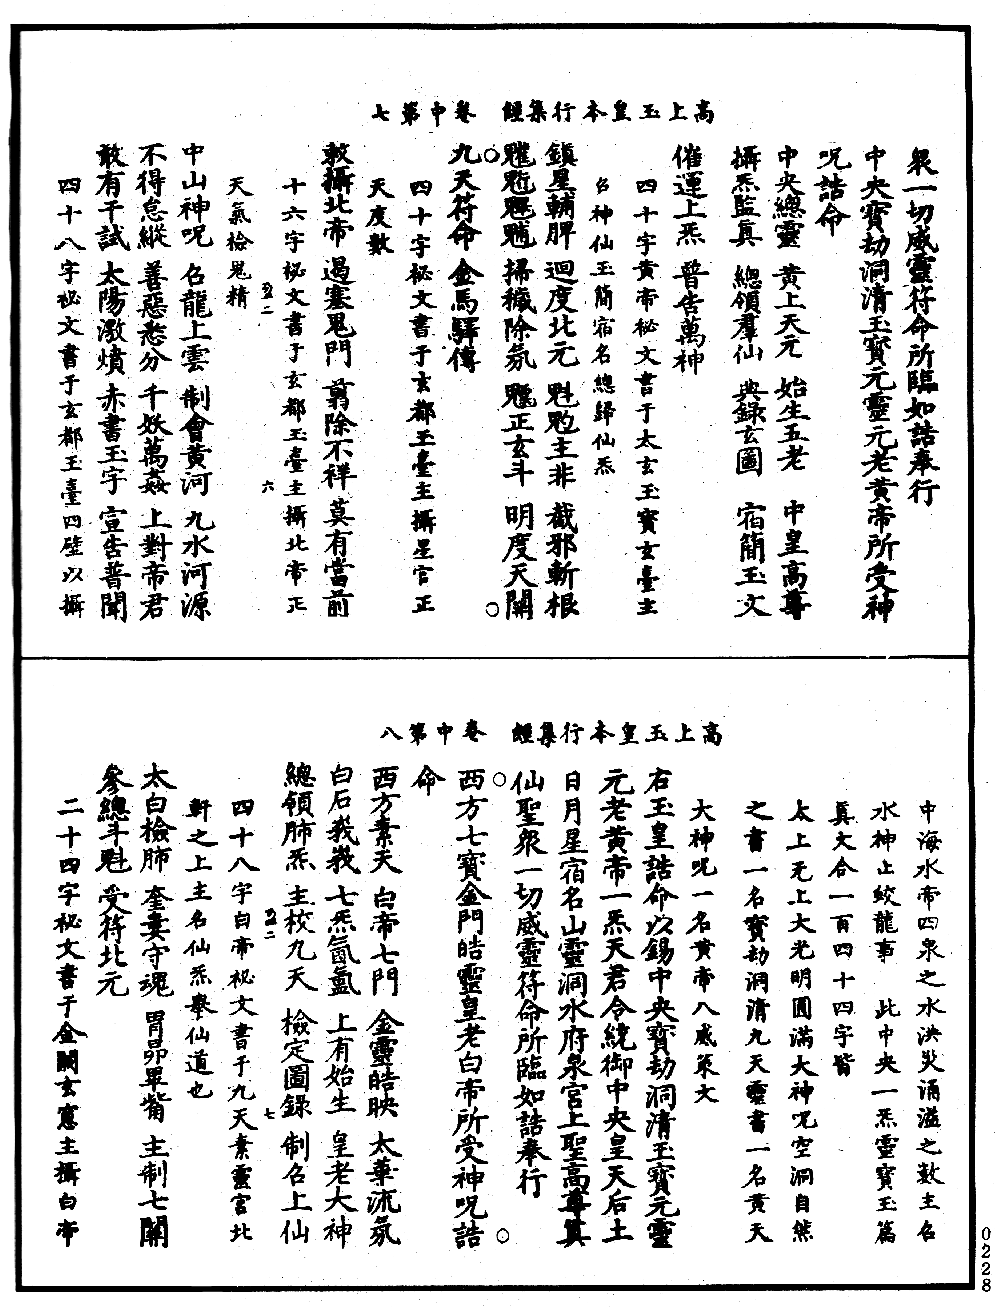 高上玉皇本行集經　卷中第七
眾一切威靈符命所臨如誥奉行
中央寶劫洞清玉寶元靈元老黃帝所受神
呪誥命
中央總靈　黃上天元　始生五老　中皇高尊
攝炁監真　總領羣仙　典錄玄圖　宿簡玉文
催運上炁　普告萬神
四十字黃帝秘文書于太玄玉寶玄臺主
召神仙玉簡宿名總歸仙炁
鎮星輔脾　迴度北元　魁魒主非　截邪斬根
掃穢除氛　正玄斗　明度天關
九天符命　金馬驛傳
四十字秘文書于玄都玉臺主攝星官正
天度數
敕攝北帝　遏塞鬼門　翦除不祥　莫有當前
十六字秘文書于玄都玉臺主攝北帝正
天氣檢鬼精
中山神呪　召龍上雲　制會黃河　九水河源
不得怠縱　善惡悉分　千妖萬姦　上對帝君
敢有干試　太陽激憤　赤書玉字　宣告普聞
四十八字秘文書于玄都玉臺四壁以攝
六
高上玉皇本行集經　卷中第八
中海水帝四泉之水洪災涌溢之數主召
水神止蛟龍事　此中央一炁靈寶玉篇
真文合一百四十四字皆
太上无上大光明圓滿大神呪空洞自然
之書一名寶劫洞清九天靈書一名黃天
大神呪一名黃帝八威策文
右玉皇誥命以錫中央寶劫洞清玉寶元靈
元老黃帝一炁天君令統御中央皇天后土
日月星宿名山靈洞水府泉宮上聖高尊真
仙聖眾一切威靈符命所臨如誥奉行
西方七寶金門皓靈皇老白帝所受神呪誥
命
西方素天　白帝七門　金靈皓映　太華流氛
白石峩峩　七炁氤氳　上有始生　皇老大神
總領肺炁　主校九天　檢定圖錄　制召上仙
四十八字白帝秘文書于九天素靈宮北
軒之上主名仙炁舉仙道也
太白檢肺　奎婁守魂　胃昴畢觜　主制七關
參總斗魁　受符北元
二十四字秘文書于金闕玄窓主攝白帝
七
0228